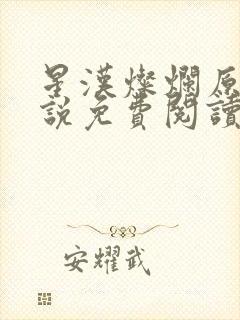 星漢燦爛原
說免費閱讀
安耀武